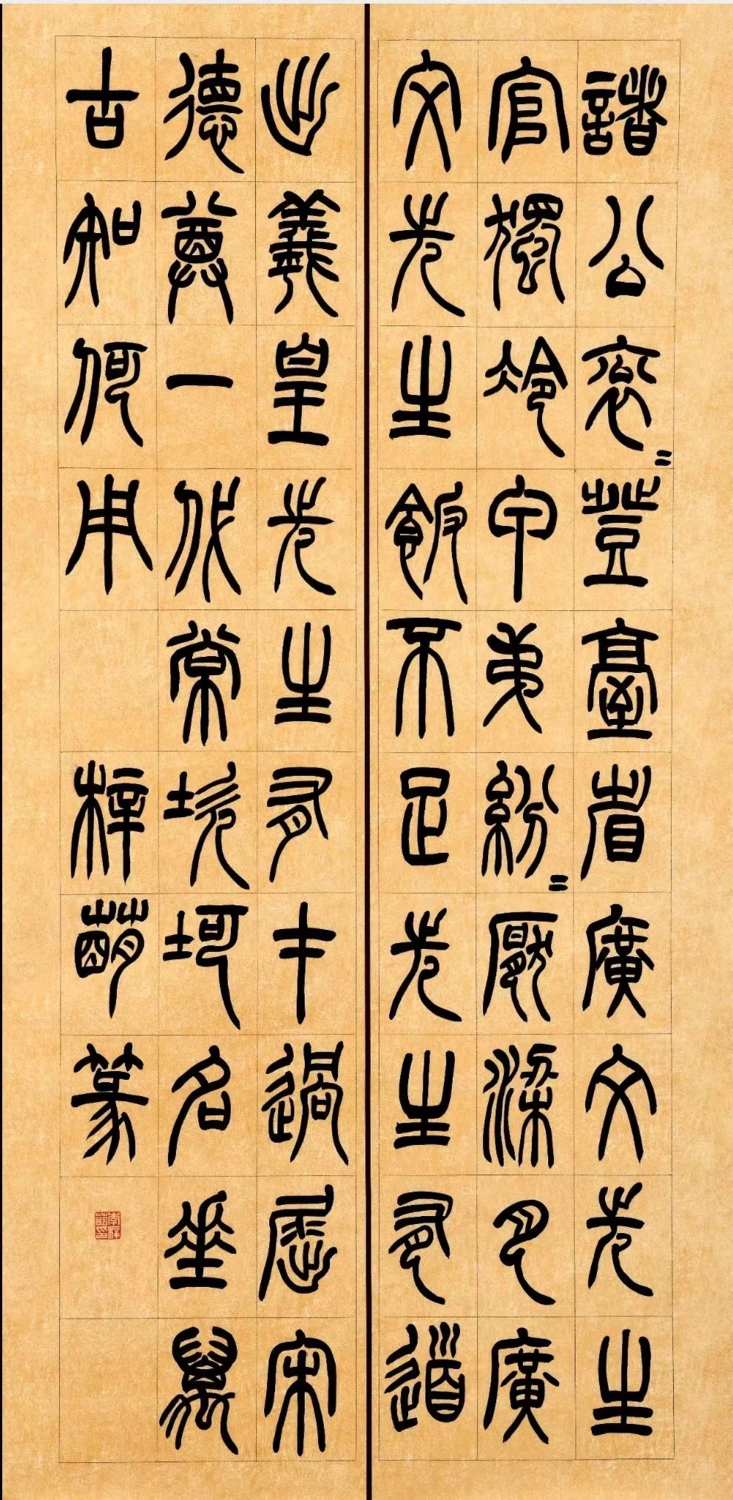 諸公袞〻登臺省廣文先生
官獨冷甲弟紛〻厭粱肉廣
文先生飯不足先生有道
出羲皇先生有才過屈宋
德尊一代常坎坷名垂萬
古知何用
梓萌篆